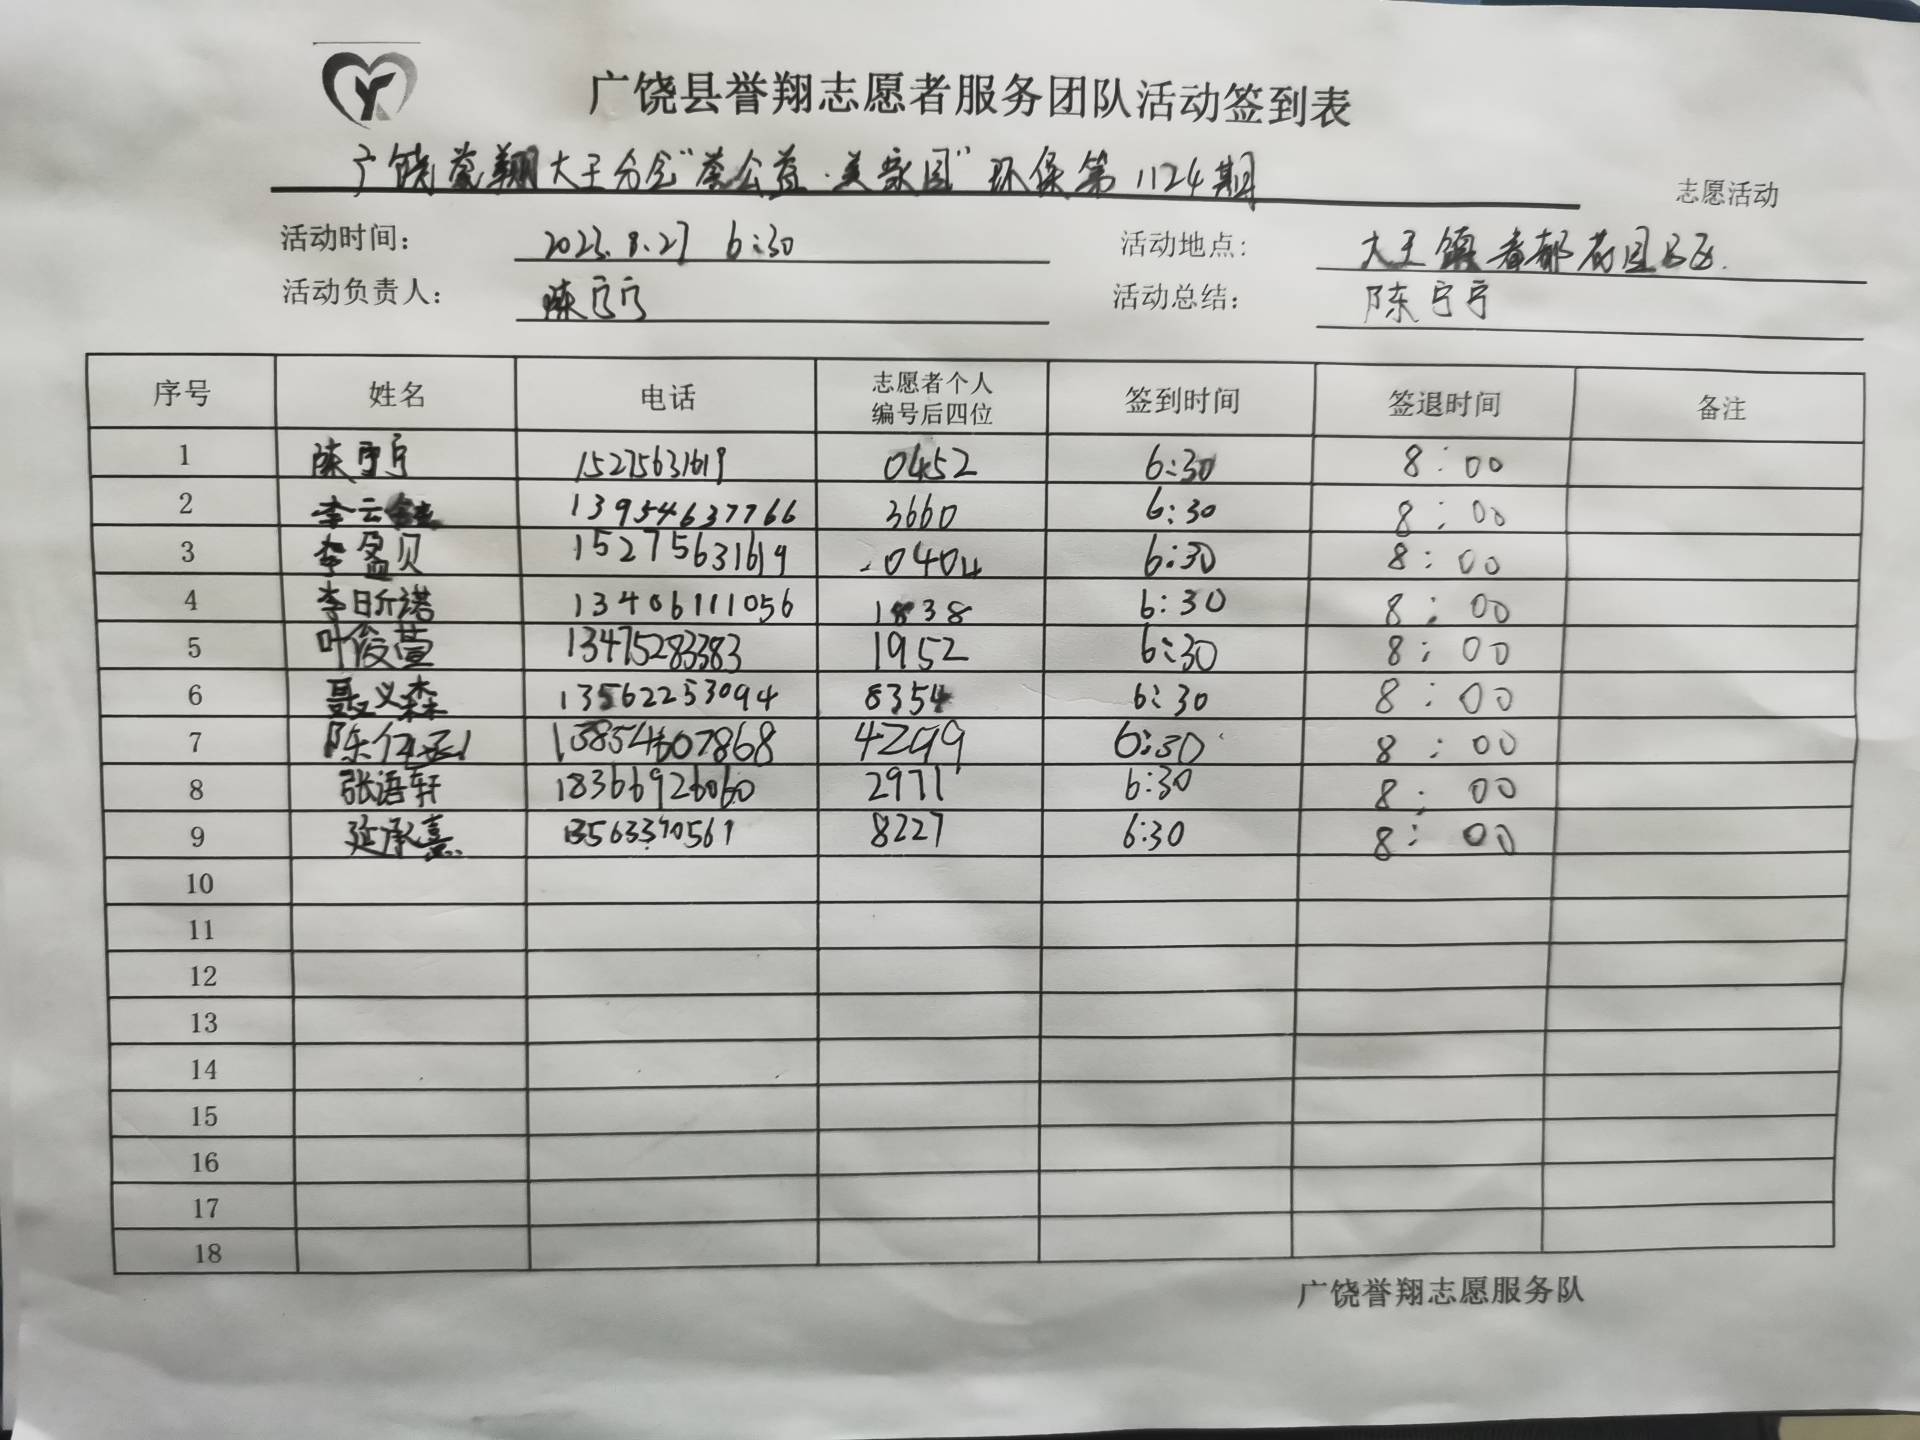 广饶县誉翔志愿者服务团队活动签到表
广饶誉翔大王分会“誉公益·美家园”环保第1124期 志愿活动
活动时间： 2023.8.27 6:30 活动地点： 大王镇 都花园
活动负责人： 陈宁宁 活动总结： 陈宁宁
序号 姓名 电话 志愿者个人编号后四位 签到时间 签退时间 备注
1 陈宁宁 15275631619 0452 6:30 8:00
2 李云 13954637766 3660 6:30 8:00
3 李盈贝 15275631619 0404 6:30 8:00
4 李昕诺 13406111056 1838 6:30 8:00
5 叶俊萱 13475283383 1952 6:30 8:00
6 聂义森 13562253094 8354 6:30 8:00
7 陈 13854607868 4299 6:30 8:00
8 张语轩 18366926060 2971 6:30 8:00
9 延承熹 13563370561 8227 6:30 8:00
10
11
12
13
14
15
16
17
18
广饶誉翔志愿服务队